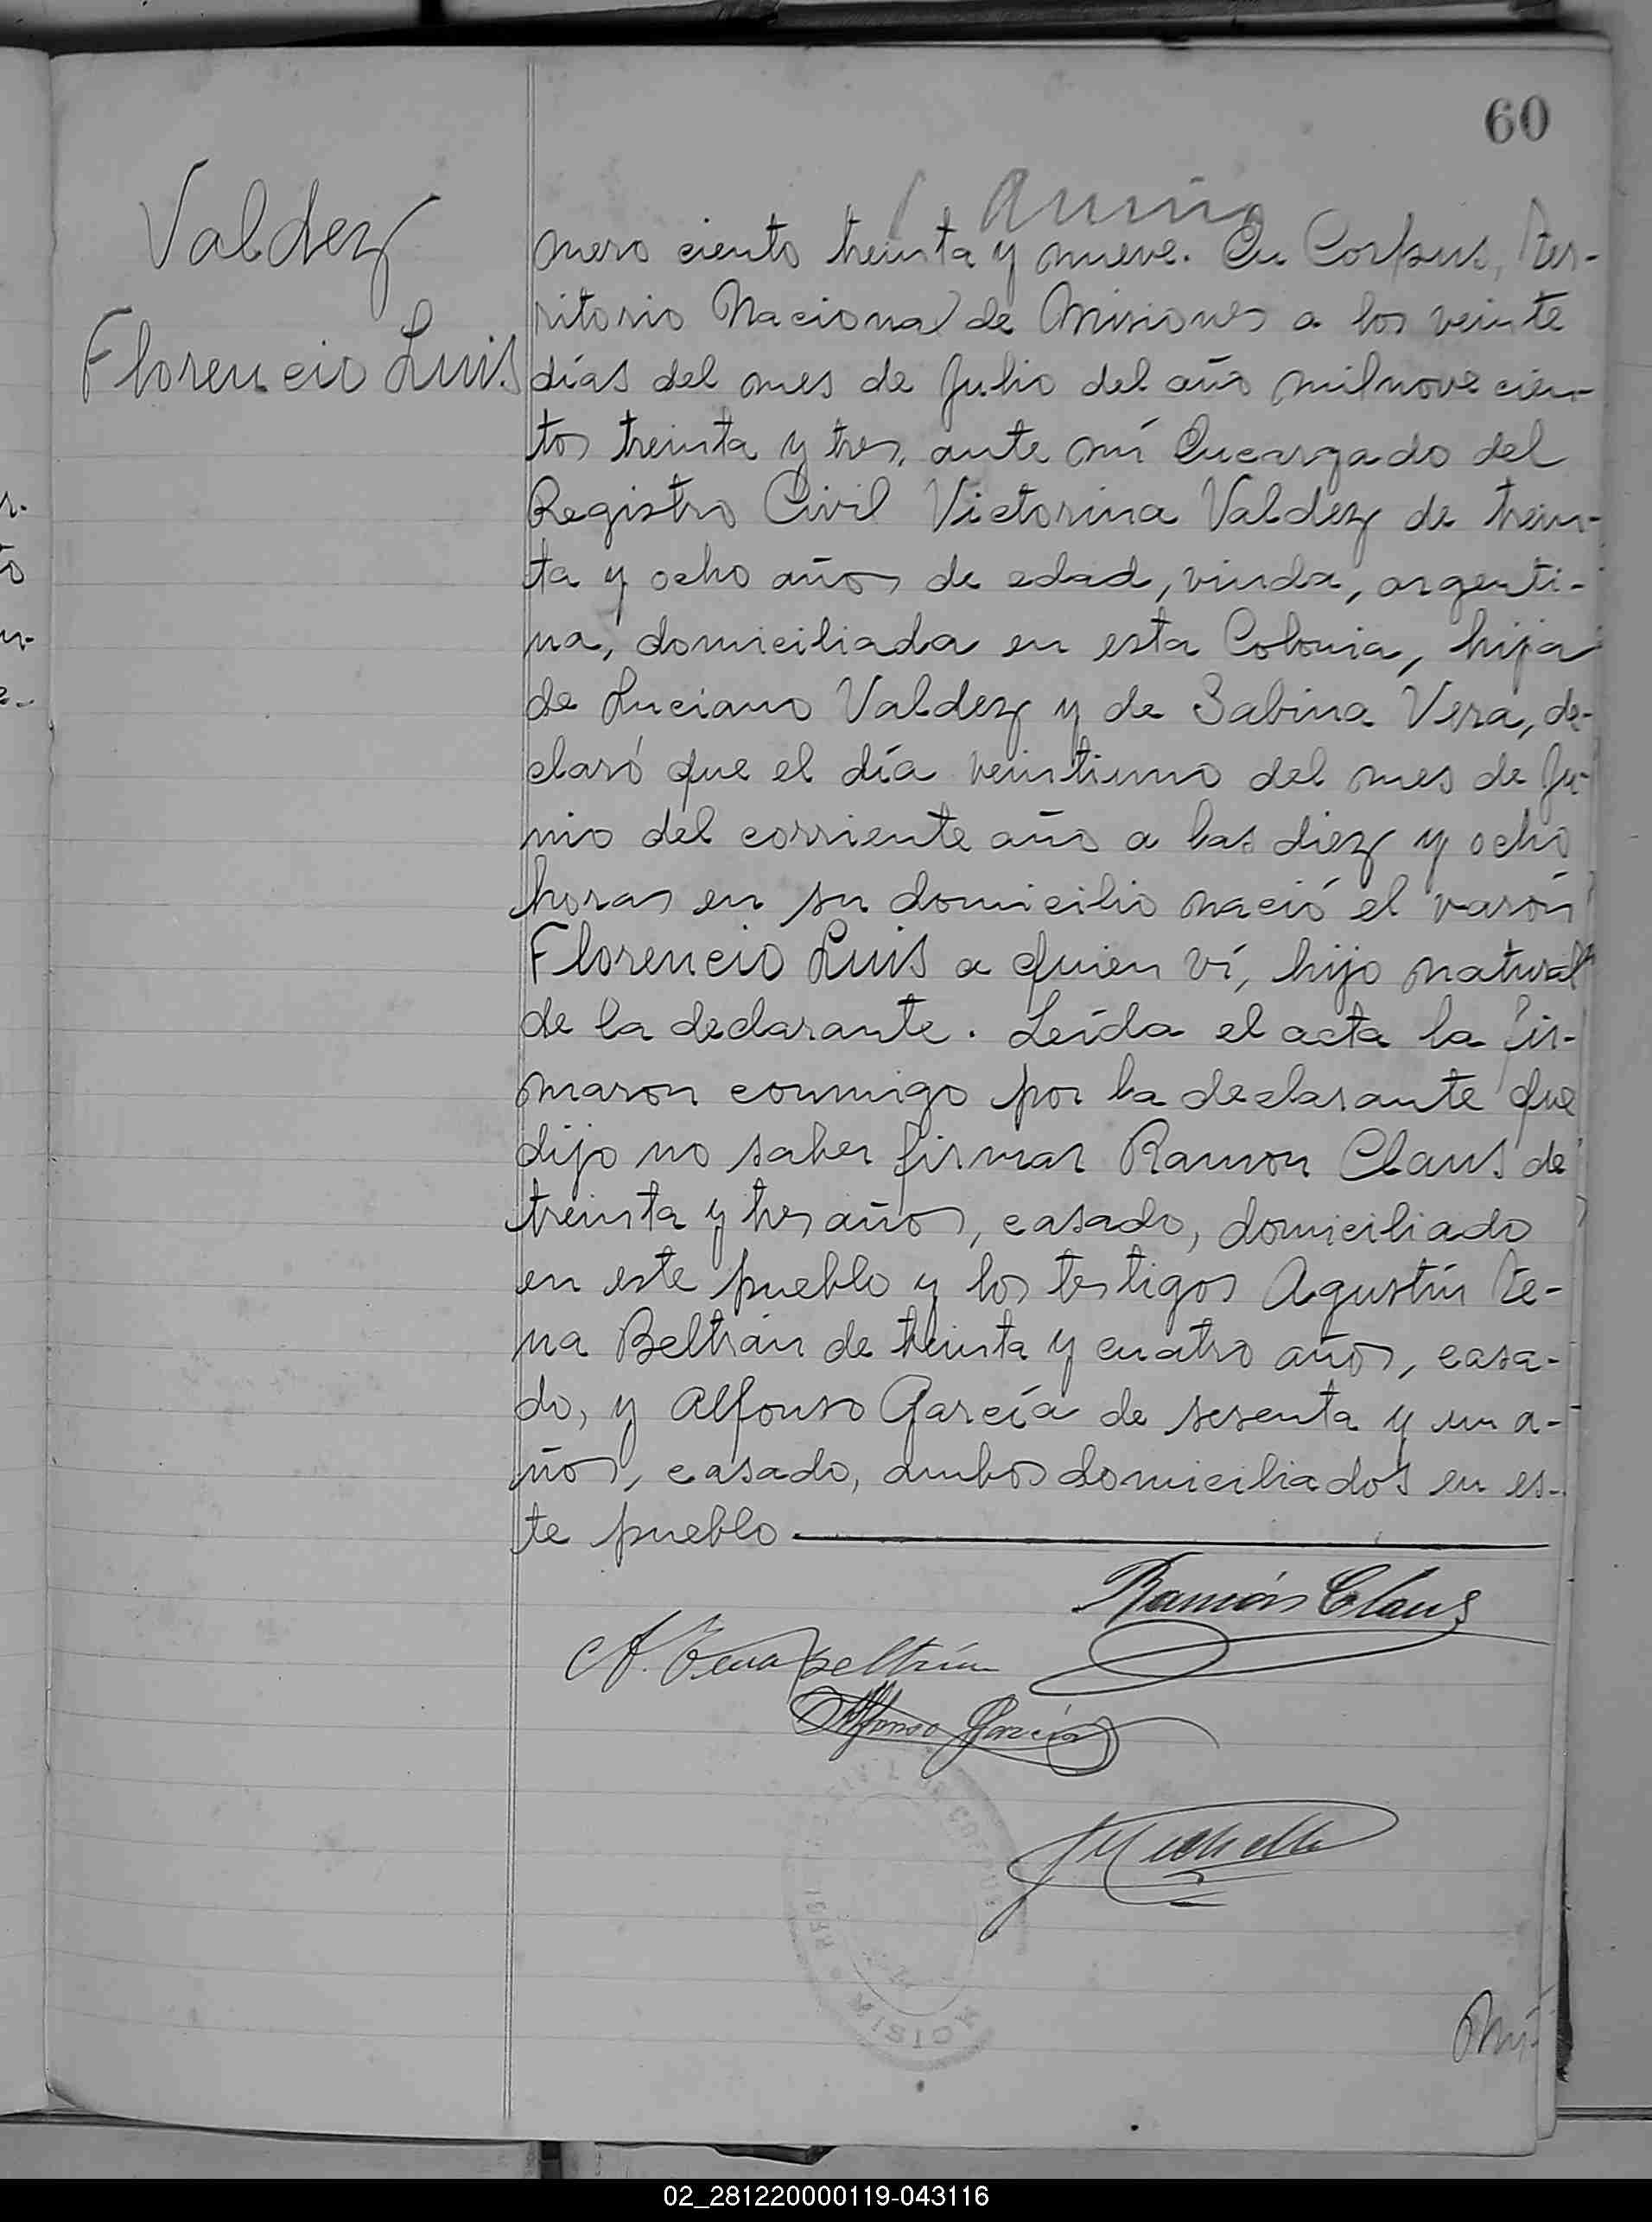 60
Valdez
Florencio Luis
mero ciento treinta y nueve. En Corpus, ter-
ritorio Nacional de Misiones a los veinte
días del mes de Julio del año mil nove cien-
tos treinta y tres, ante mí Encargado del
Registro Civil Victorina Valdez de trein-
ta y ocho años de edad, viuda, argenti-
na, domiciliada en esta Colonia, hija
de Luciano Valdez y de Sabina Vera, de-
claró que el día veintiuno del mes de Ju-
nio del corriente año a las diez y ocho
horas en su domicilio nació el varón
Florencio Luis a quien ví, hijo natural
de la declarante. Leída el acta la fir-
maron conmigo por la declarante que
dijo no saber firmar Ramon Claus de
treinta y tres años, casado, domiciliado
en este pueblo y los testigos Agustín Te-
na Beltrán de treinta y cuatro años, casa-
do, y Alfonso García de sesenta y un a-
ños, casado, ambos domiciliados en es-
te pueblo
Ramón Claus
A. Tena Beltrán
Alfonso García
02_281220000119-043116